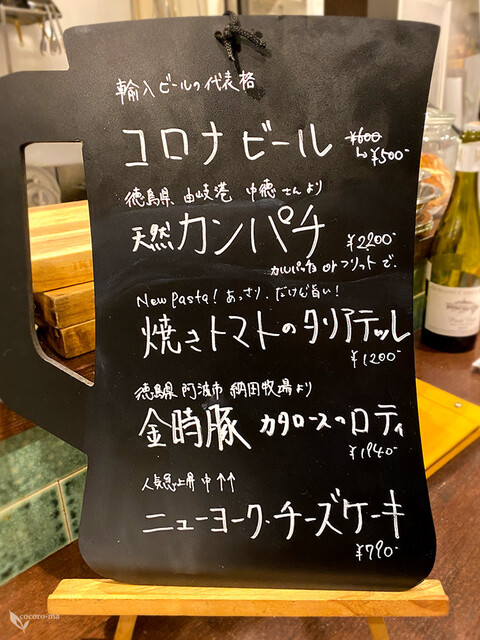 輸入ビールの代表格
コロナビール ¥600 → ¥500-
徳島県 由岐港 中徳さんより
天然カンパチ ¥2200-
カルパッチョ or フリットで。
New Pasta! あっさり、だけど旨い!
焼きトマトのタリアテッレ
¥1200-
徳島県 阿波市 納田牧場より
金時豚 カタロースのロティ
¥1940-
人気急上昇中↑↑
ニューヨーク・チーズケーキ
¥790-
cocoro-ma